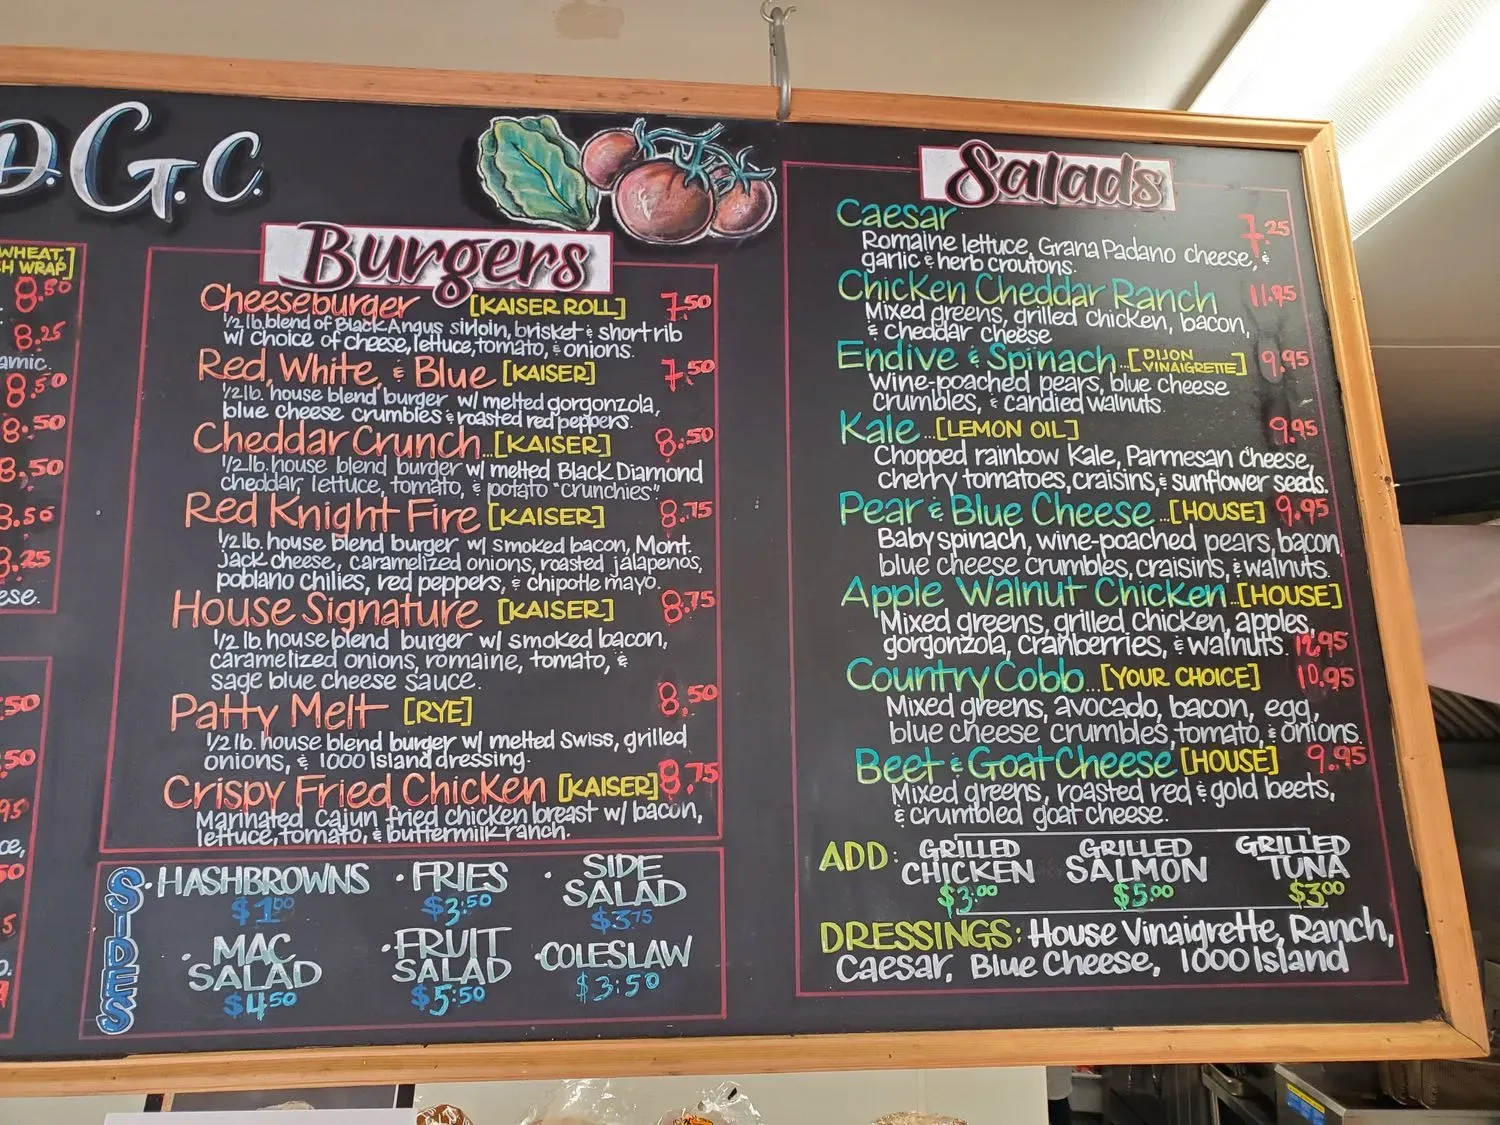 D.G.C.
WHEAT,
H WRAP]
8.50
8.25
amic.
8.50
8.50
8.50
8.50
8.25
ese.
Burgers
Cheeseburger [KAISER ROLL] 7.50
1/2 lb. blend of Black Angus sirloin, brisket & short rib
w/ choice of cheese, lettuce, tomato, & onions.
Red, White, & Blue [KAISER] 7.50
1/2 lb. house blend burger w/ melted gorgonzola,
blue cheese crumbles & roasted red peppers.
Cheddar Crunch...[KAISER] 8.50
1/2 lb. house blend burger w/ melted Black Diamond
cheddar, lettuce, tomato, & potato "crunchies".
Red Knight Fire [KAISER] 8.75
1/2 lb. house blend burger w/ smoked bacon, Mont.
Jack cheese, caramelized onions, roasted jalapenos,
poblano chilies, red peppers, & chipotle mayo.
House Signature [KAISER] 8.75
1/2 lb. house blend burger w/ smoked bacon,
caramelized onions, romaine, tomato, &
sage blue cheese sauce.
Patty Melt [RYE] 8.50
1/2 lb. house blend burger w/ melted Swiss, grilled
onions, & 1000 Island dressing.
Crispy Fried Chicken [KAISER] 8.75
Marinated cajun fried chicken breast w/ bacon,
lettuce, tomato, & buttermilk ranch.
SIDES
· HASHBROWNS $1.00
· FRIES $3.50
· SIDE SALAD $3.75
· MAC SALAD $4.50
· FRUIT SALAD $5.50
· COLESLAW $3.50
Salads
Caesar 7.25
Romaine lettuce, Grana Padano cheese, &
garlic & herb croutons.
Chicken Cheddar Ranch 11.95
Mixed greens, grilled chicken, bacon,
& cheddar cheese
Endive & Spinach...[DIJON VINAIGRETTE] 9.95
Wine-poached pears, blue cheese
crumbles, & candied walnuts.
Kale...[LEMON OIL] 9.95
Chopped rainbow Kale, Parmesan cheese,
cherry tomatoes, craisins, & sunflower seeds.
Pear & Blue Cheese...[HOUSE] 9.95
Baby spinach, wine-poached pears, bacon
blue cheese crumbles, craisins, & walnuts.
Apple Walnut Chicken...[HOUSE]
Mixed greens, grilled chicken, apples,
gorgonzola, cranberries, & walnuts. 12.95
Country Cobb...[YOUR CHOICE] 10.95
Mixed greens, avocado, bacon, egg,
blue cheese crumbles, tomato, & onions.
Beet & Goat Cheese [HOUSE] 9.95
Mixed greens, roasted red & gold beets,
& crumbled goat cheese.
ADD: GRILLED CHICKEN $3.00 GRILLED SALMON $5.00 GRILLED TUNA $3.00
DRESSINGS: House Vinaigrette, Ranch,
Caesar, Blue Cheese, 1000 Island